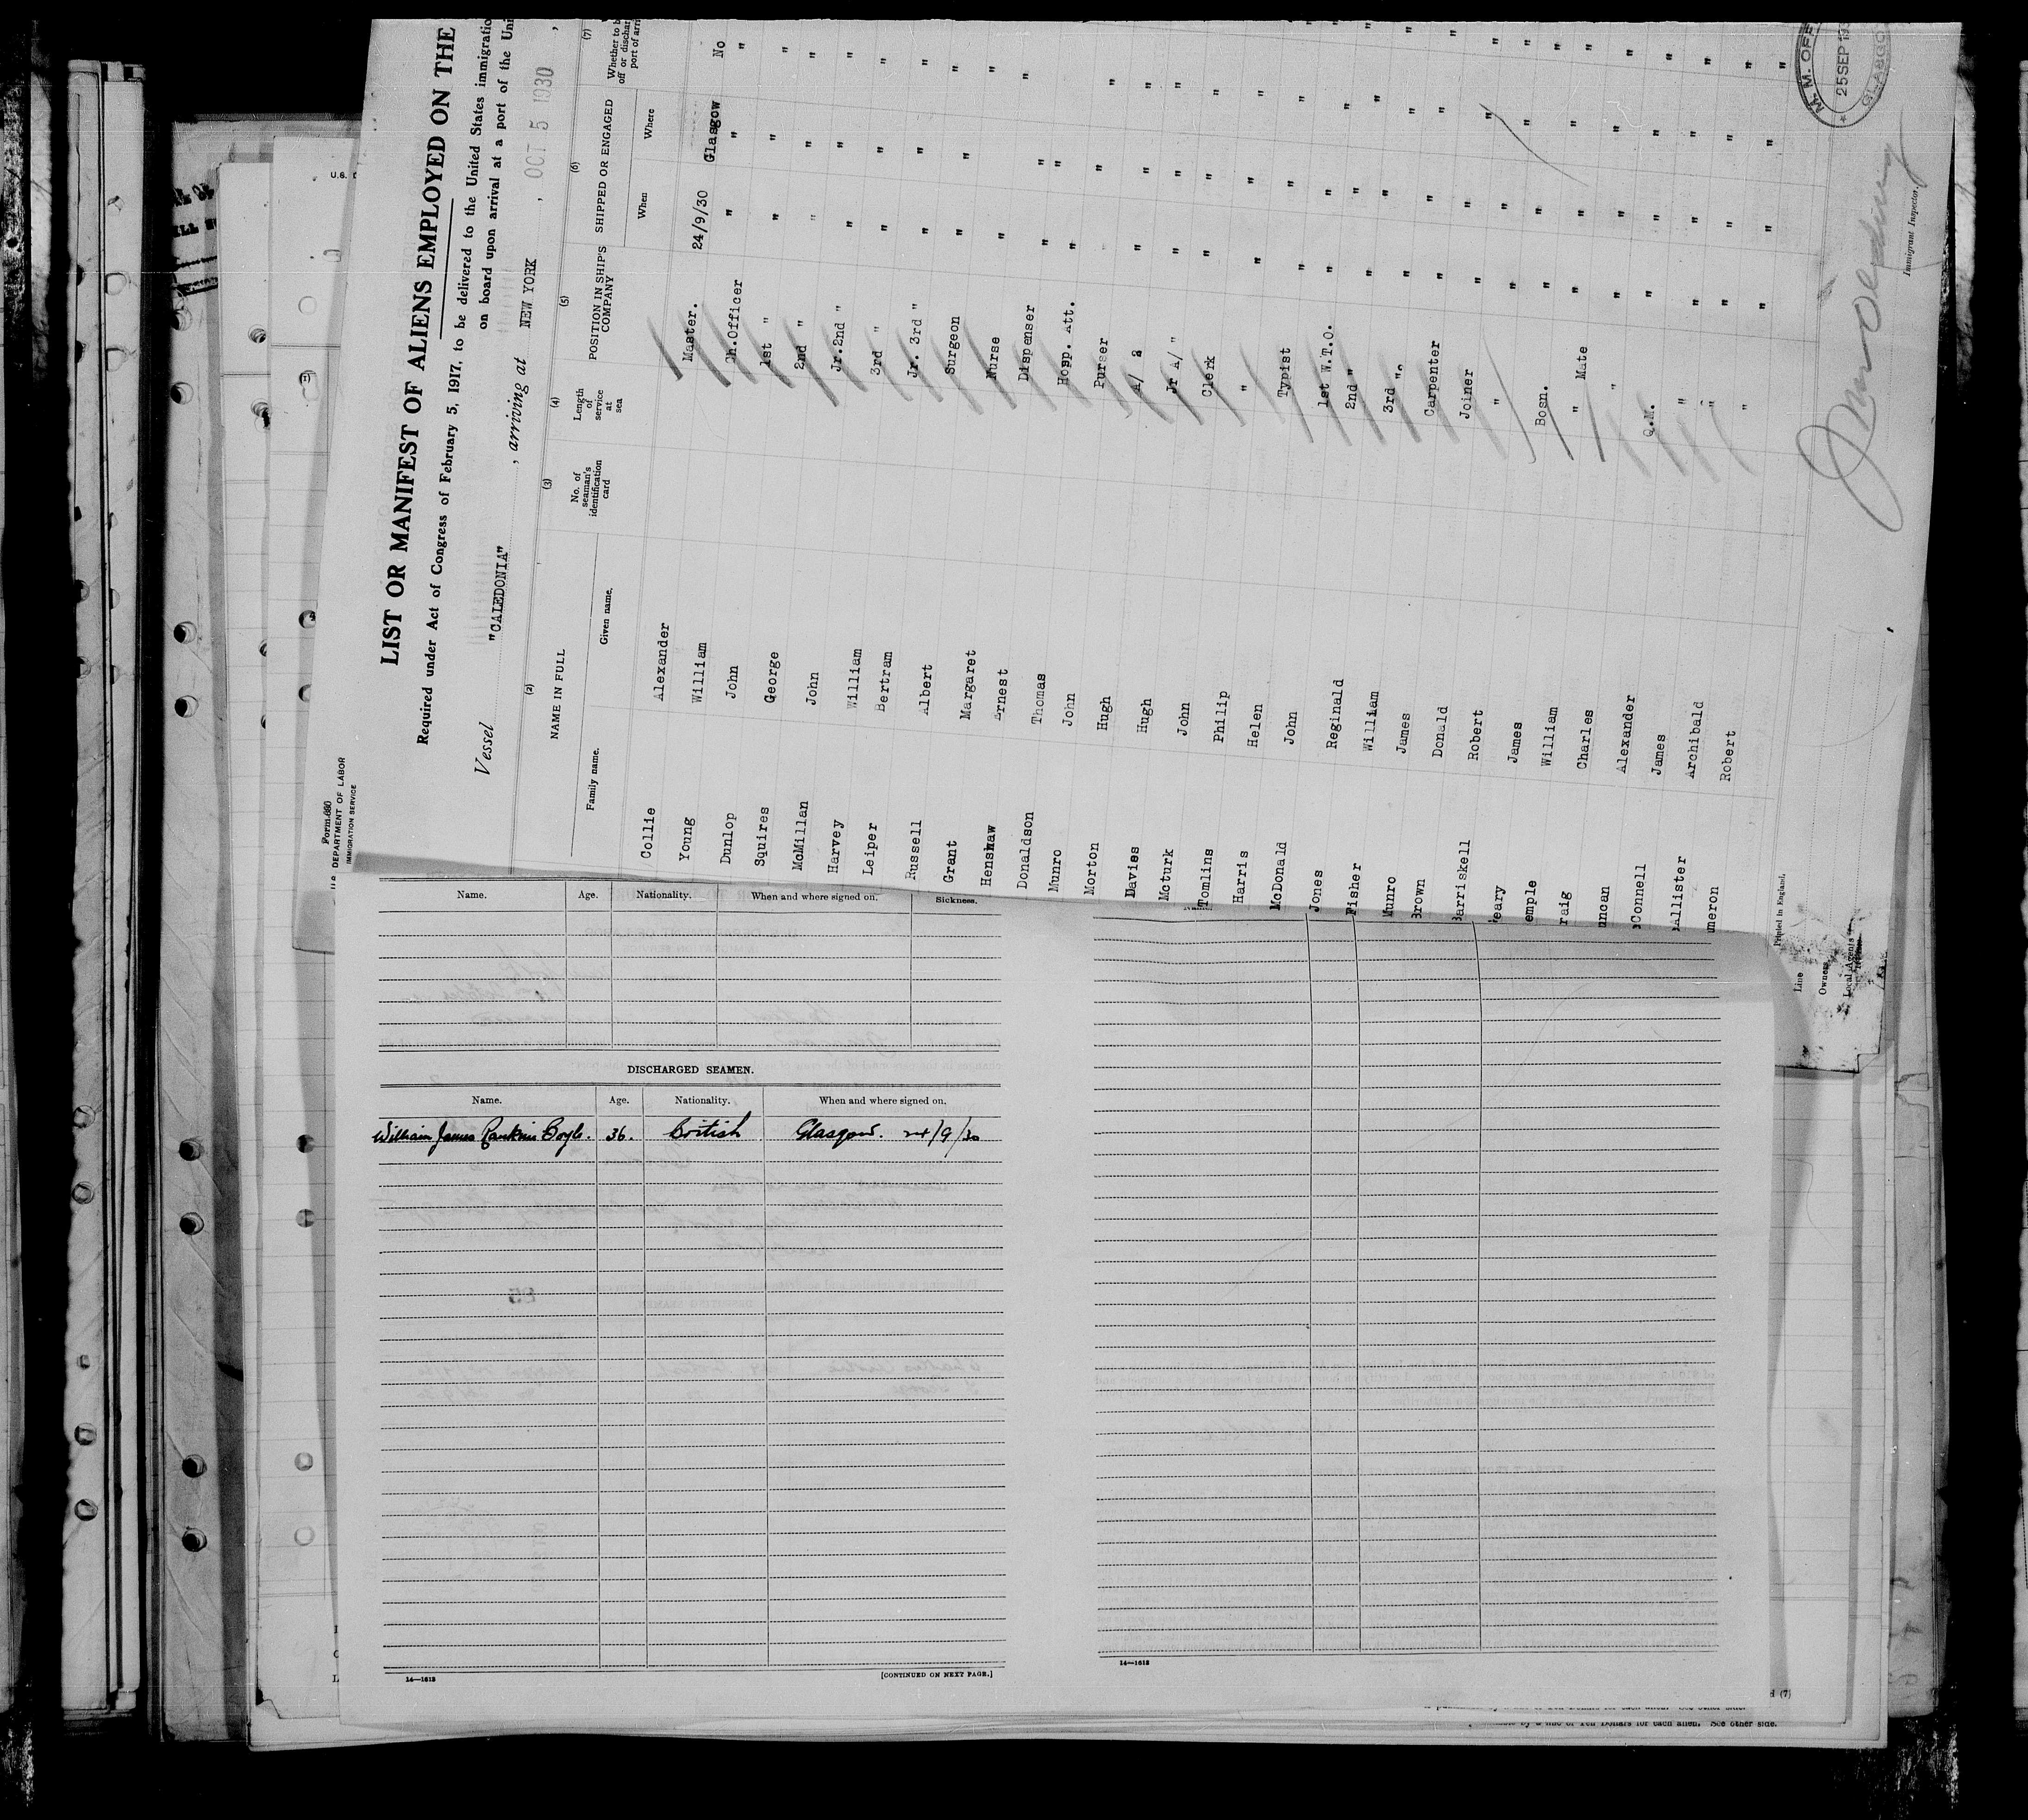 Form 680
U.S. DEPARTMENT OF LABOR
IMMIGRATION SERVICE
LIST OR MANIFEST OF ALIENS EMPLOYED ON THE
Required under Act of Congress of February 5, 1917, to be delivered to the United States immigratio
on board upon arrival at a port of the Uni
Vessel "CALEDONIA", arriving at NEW YORK, OCT 5 1930,
(2) (3) (4) (5) (6) (7)
NAME IN FULL No. of seaman's identification card Length of service at sea POSITION IN SHIP'S COMPANY SHIPPED OR ENGAGED Whether to b off or dischar port of arri
Family name. Given name. When Where
Collie Alexander Master. 24/9/30 Glasgow No
Young William Ch.Officer " " "
Dunlop John 1st " " " "
Squires George 2nd " " " "
McMillan John Jr.2nd " " " "
Harvey William 3rd " " " "
Leiper Bertram Jr. 3rd " " " "
Russell Albert Surgeon " " "
Grant Margaret Nurse " " "
Henshaw Ernest Dispenser " " "
Donaldson Thomas Hosp. Att. " " "
Munro John Purser " " "
Morton Hugh A/ " " " "
Davies Hugh Jr A/ " " " "
Mcturk John Clerk " " "
Tomlins Philip " " " "
Harris Helen Typist " " "
McDonald John 1st W.T.O. " " "
Jones Reginald 2nd " " " "
Fisher William 3rd " " " "
Munro James Carpenter " " "
Brown Donald Joiner " " "
Barriskell Robert " " " "
eary James Bosn. " " "
emple William " Mate " " "
raig Charles " " " "
uncan Alexander Q.M. " " "
Connell James " " " "
Allister Archibald " " " "
meron Robert " " " "
M. M. OFF
25 SEP 193
GLASGO
Immigrant Inspector.
Printed in England.
Line
Owners
Local Agents
Name. Age. Nationality. When and where signed on. Sickness.
DISCHARGED SEAMEN.
Name. Age. Nationality. When and where signed on.
William James Rankin Boyle. 36. British Glasgow. 24/9/30
14—1612 [CONTINUED ON NEXT PAGE.]
14—1612
for each alien. See other side.